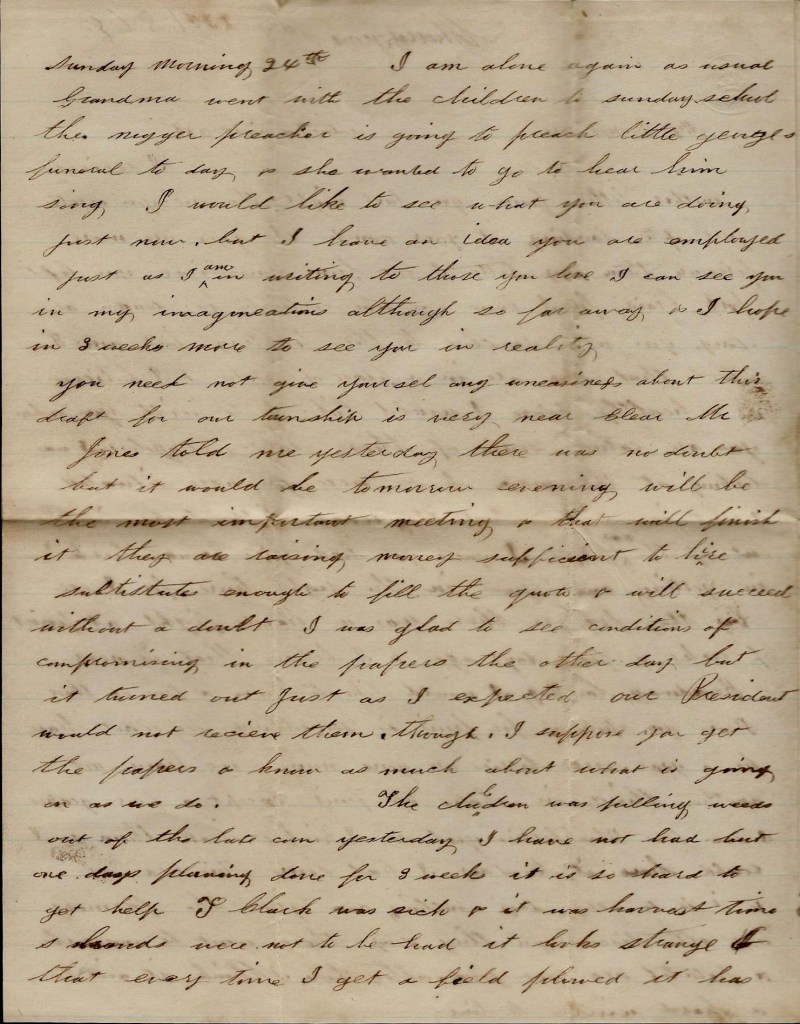 Sunday Morning 24th I am alone again as usual
Grandma went with the children to sunday school
the nigger preacher is going to preach little georges
funeral to day & she wanted to go to hear him
sing I would like to see what you are doing
just now. but I have an idea you are employed
just as I am in writing to those you love I can see you
in my imagineations although so far away & I hope
in 3 weeks more to see you in reality
you need not give yoursel any uneasiness about this
draft for our township is very near clear Mr
Jones told me yesterday there was no doubt
but it would be tomorrow evening will be
the most important meeting & that will finish
it they are raising money sufficient to hire
substitutes enough to fill the quota & will succeed
without a doubt I was glad to see conditions of
compromising in the papers the other day but
it turned out just as I expected our President
would not recieve them. though. I suppose you get
the papers & know as much about what is going
on as we do. The children was pulling weeds
out of the late corn yesterday I have not had but
one days plowing done for 3 week it is so hard to
get help T Clark was sick & it was harvest time
& hands were not to be had it looks strange
that every time I get a field plowed it has